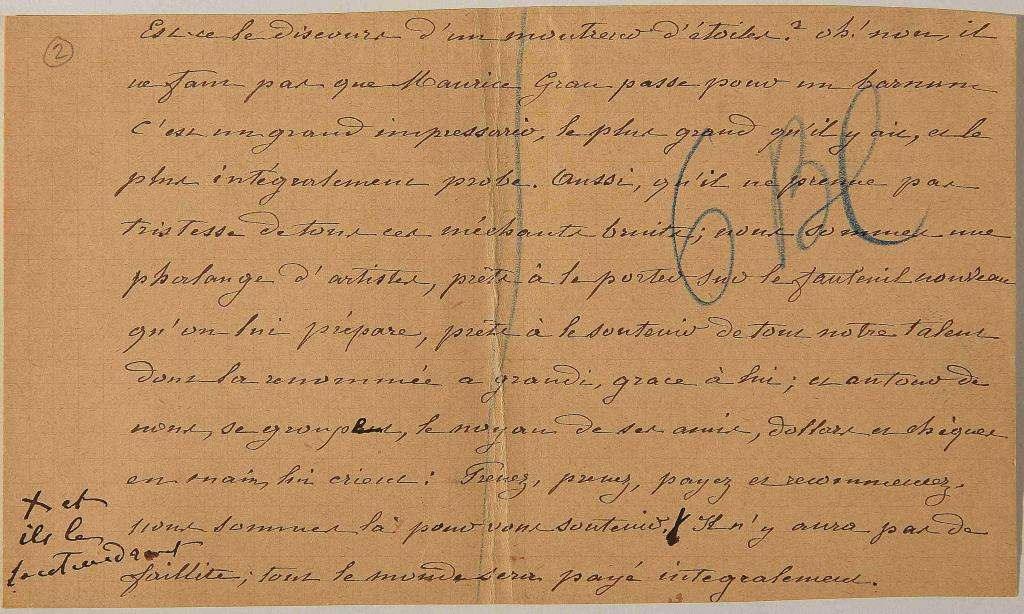 2
Est-ce le discours d'un montreur d'étoiles? oh! non, il
ne faut pas que Maurice Grau passe pour un barnum
C'est un grand impressario, le plus grand qu'il y ait, et le
plus intégralement probe. Aussi, qu'il ne prenne pas
tristesse de tous ces méchants bruits; nous sommes une
phalange d'artistes, prêts à le porter sur le fauteuil nouveau
qu'on lui prépare, prêts à le soutenir de tout notre talent
dont la renommée a grandi, grace à lui; et autour de
nous, se groupe, le noyau de ses amis, dollars et chèques
en main, lui crient: Prenez, prenez, payez et recommencez,
nous sommes là pour vous soutenir. X Il n'y aura pas de
faillite; tout le monde sera payé integralement.
X et
ils le
soutiendront
6 Bl